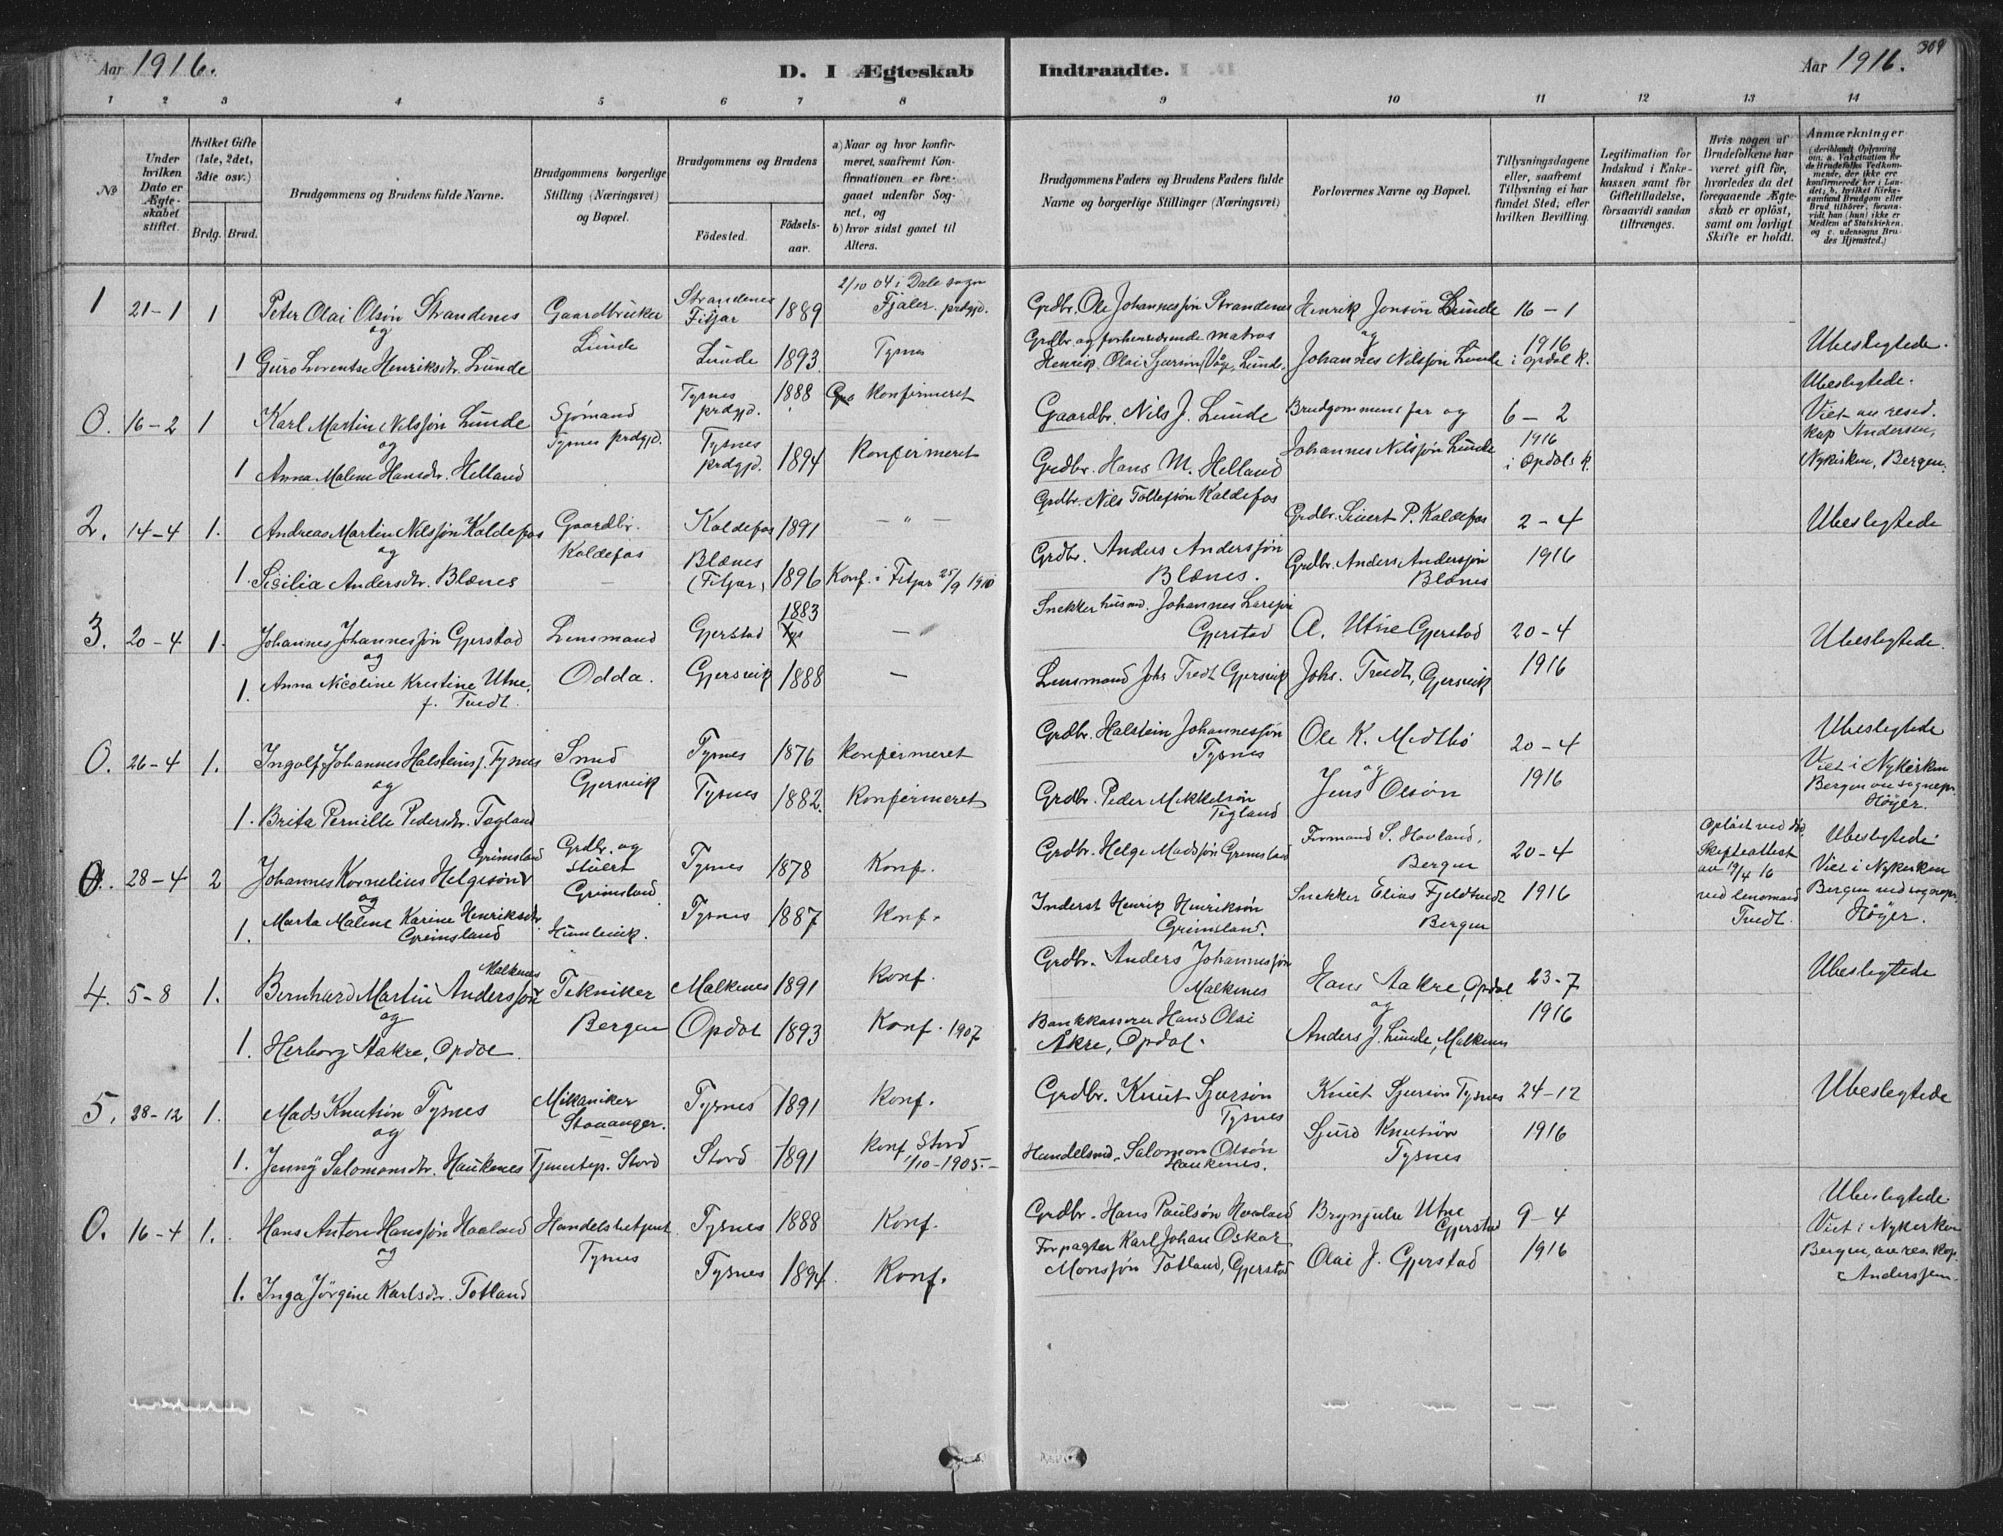 Aar 1916.
D. I Ægteskab Indtraadte.
Aar 1916.
309
1 2 3 4 5 6 7 8 9 10 11 12 13 14
No
Under hvilken Dato er Ægteskabet stiftet.
Hvilket Gifte (1ste, 2det, 3die osv.)
Brdg. Brud.
Brudgommens og Brudens fulde Navne.
Brudgommens borgerlige Stilling (Næringsvei) og Bopæl.
Brudgommens og Brudens
Födested.
Födselsaar.
a) Naar og hvor konfirmeret, saafremt Konfirmationen er foregaaet udenfor Sognet, og
b) hvor sidst gaaet til Alters.
Brudgommens Faders og Brudens Faders fulde Navne og borgerlige Stillinger (Næringsvei)
Forlovernes Navne og Bopæl.
Tillysningsdagene eller, saafremt Tillysning ei har fundet Sted, efter hvilken Bevilling.
Legitimation for Indskud i Enkekassen samt for Giftetilladelse, forsaavidt saadan tiltrænges.
Hvis nogen af Brudefolkene har været gift för, hvorledes da det foregaaende Ægteskab er oplöst, samt om lovligt Skifte er holdt.
Anmærkninger (deriblandt Oplysning om: a. Vakcination for de Brudefolks Vedkommende, der ikke ere konfirmerede her i Landet; b. hvilket Kirkesamfund Brudgom eller Brud tilhörer, forsaavidt han (hun) ikke er Medlem af Statskirken, og c. udensogns Brudes Hjemsted.)
1 21-1 1 Peter Olai Olsøn Strandenes Gaardbruker Strandenes Fitjar 1889 2/10 04 i Dale sogn Fjaler prdgjd. Grdbr. Ole Johannessøn Strandenes Henrik Jonsøn Lunde 16-1
og Lunde Grdbr. og forhenværende matros og 1916
1 Guro Lorentse Henriksdtr. Lunde Lunde 1893 Tysnes Henrik Olai Sjursøn Våge, Lunde. Johannes Nilsjøn Lunde i Opdal K. Ubeslegtede.
O. 16-2 1 Karl Martin Nilsjøn Lunde Sjømand Tysnes prdgjd. Tysnes prdgjd. 1888 konfirmeret Gaardbr. Nils J. Lunde Brudgommens far og 6-2 Ubeslegtede.
og 1916 Viet av resid. kap Andersen,
1 Anna Malene Hansdtr. Helland Tysnes prdgjd. 1894 Konfirmeret Grdbr. Hans M. Helland Johannes Nilsjøn Lunde i Opdals K. Nykirken, Bergen.
2. 14-4 1. Andreas Martin Nilsjøn Kaldefos Gaardbr. Kaldefos Kaldefos 1891 - " - Grdbr. Nils Tollefsøn Kaldefos Grdbr. Sivert P. Kaldefos 2-4 Ubeslegtede
og
1. Sisilia Andersdtr. Blænes - Blænes (Fitjar) 1896 Konf. i Fitjar 25/9 1910 Grdbr. Anders Andersjøn Blænes. Grdbr. Anders Andersjøn Blænes 1916
3. 20-4 1. Johannes Johannesjøn Gjerstad Lensmand Gjerstad 1883 - Snekker husmd. Johannes Larsjøn Gjerstad A. Utne Gjerstad 20-4 Ubeslegtede.
og
1. Anna Nicoline Kristine Utne, f. Tvedt. Odda. Gjersvik 1888 - Lensmand Johs Tvedt Gjersvik Johs. Tvedt, Gjersvik 1916
O. 26-4 1. Ingolf Johannes Halsteinsj. Tysnes Smed Gjersvik Tysnes 1876 konfirmeret Grdbr. Halstein Johannesjøn Tysnes Ole K. Midtbø 20-4 Ubeslegtede
og og Viet i Nykirken
1. Brita Pernille Pedersdtr. Tegland Tysnes 1882. Konfirmeret Grdbr. Peder Mikkelsøn Tegland Jens Olsøn 1916 Bergen av sognepr. Høyer.
O. 28-4 2 Johannes Kornelius Helgesøn Grimsland Grdbr. og Stuert Grimsland Tysnes 1878 Konf. Grdbr. Helge Madsjøn Grimsland Formand S. Hovland, Bergen 20-4 Opløst ved død Skifteattest av 17/4 16 Ubeslegtede
og Viet i Nykirken
1. Marta Maline Karine Henriksdtr. Grimsland Tysnes 1887 Konf. Inderst Henrik Henriksøn Grimsland. Snekker Elias Fjeldtvedt Bergen 1916 ved lensmand Tvedt. Bergen ved sognepr. Høyer.
4. 5-8 1. Bernhard Martin Andersjøn Malkenes Tekniker Malkenes 1891 Konf. Grdbr. Anders Johannesjøn Malkenes Hans Aakre, Opdal 23-7 Ubeslegtede
og og
1. Herborg Aakre, Opdal. Bergen Opdal 1893 Konf. 1907 Bankkasserer Hans Olai Åkre, Opdal. Anders J. Lunde, Malkenes 1916
5. 28-12 1. Mads Knutsøn Tysnes Mekaniker Stavanger. Tysnes 1891 Konf. Grdbr. Knut Sjursøn Tysnes Knut Sjursøn Tysnes 24-12 Ubeslegtede
og
1. Jenny Salomonsdtr. Haukenes Tjenestep. Stord Stord 1891 Konf Stord 1/10-1905.- Handelsmd. Salomon Olsøn Haukenes. Sjurd Knutsøn Tysnes 1916
O. 16-4 1. Hans Anton Hansjøn Haaland Handelsbetjent Tysnes 1888 Konf. Grdbr. Hans Paulsøn Haaland Brynjulv Utne Gjerstad 9-4 Ubeslegtede
og Tysnes Viet i Nykirken
1. Inga Jørgine Karlsdtr. Totland Tysnes 1894. Konf. Forpagter Karl Johan Oskar Monsjøn Totland, Gjerstad Olai J. Gjerstad 1916 Bergen, av res. kap. Andersjen.